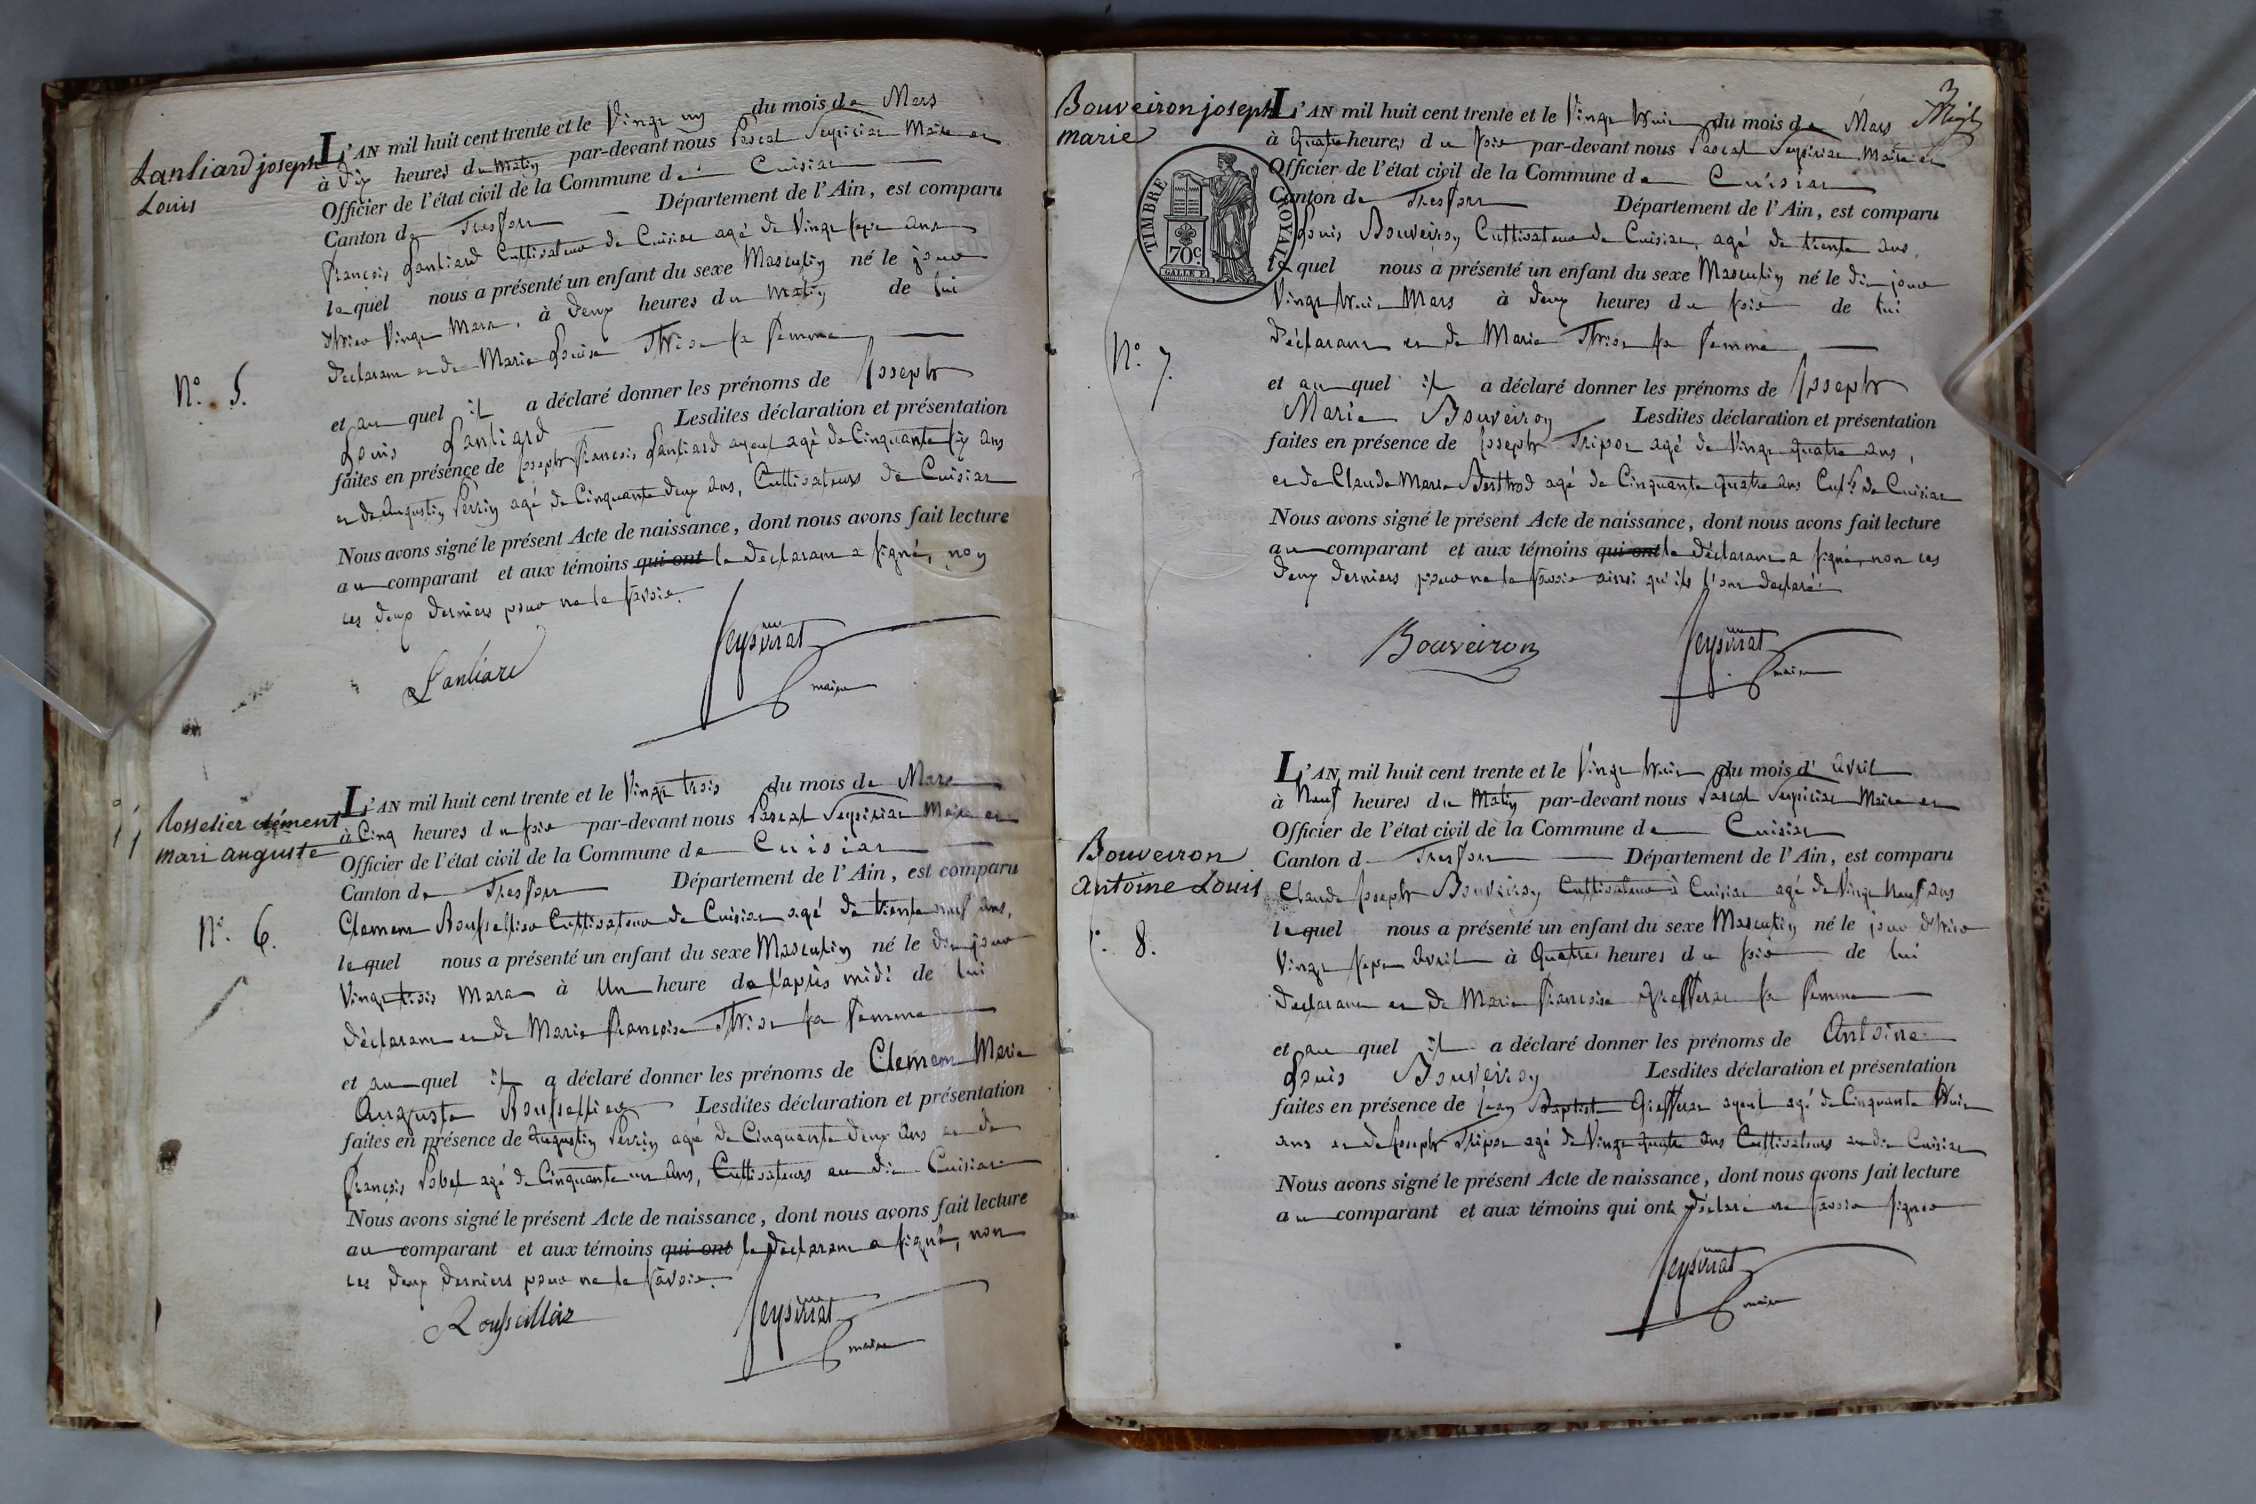 Lanliard joseph
Louis
N.° 5.
L'AN mil huit cent trente et le Vingt un du mois de Mars
à Dix heures du Matin par-devant nous Pascal Seysiriat Maire et
Officier de l'état civil de la Commune de Cuisiat
Canton de Treffort Département de l'Ain, est comparu
François Lanliard Cultivateur de Cuisiat agé de Vingt sept ans
lequel nous a présenté un enfant du sexe Masculin né le jour
d'hier Vingt Mars, à Deux heures du Matin de lui
Déclarant et de Marie Louise sa femme
et auquel il a déclaré donner les prénoms de Joseph
Louis Lanliard Lesdites déclaration et présentation
faites en présence de Joseph François Lanliard ayeul agé de Cinquante six ans
et de Augustin Perrin agé de Cinquante deux ans, Cultivateurs de Cuisiat
Nous avons signé le présent Acte de naissance, dont nous avons fait lecture
au comparant et aux témoins qui ont le Déclarant a signé, non
les deux derniers pour ne le savoir.
Lanliard
Seysiriat
maire
Rosselier clément
mari auguste
N.° 6.
L'AN mil huit cent trente et le Vingt trois du mois de Mars
à Cinq heures du soir par-devant nous Pascal Seysiriat Maire et
Officier de l'état civil de la Commune de Cuisiat
Canton de Treffort Département de l'Ain, est comparu
Clement Rousselier Cultivateur de Cuisiat agé de trente neuf ans,
lequel nous a présenté un enfant du sexe Masculin né le dit jour
Vingt trois Mars à Un heure de l'après midi de lui
Déclarant et de Marie Françoise sa femme
et auquel il a déclaré donner les prénoms de Clement Marie
Auguste Rousselier Lesdites déclaration et présentation
faites en présence de Augustin Perrin agé de Cinquante deux ans et de
François Pobel agé de Cinquante un ans, Cultivateurs au dit Cuisiat
Nous avons signé le présent Acte de naissance, dont nous avons fait lecture
au comparant et aux témoins qui ont le Déclarant a signé, non
les deux derniers pour ne le savoir.
Seysiriat
maire
3
Bouveiron joseph
marie
TIMBRE ROYAL
70c.
N.° 7.
L'AN mil huit cent trente et le Vingt huit du mois de Mars
à Quatre heures du soir par-devant nous Pascal Seysiriat Maire et
Officier de l'état civil de la Commune de Cuisiat
Canton de Treffort Département de l'Ain, est comparu
Louis Bouveiron Cultivateur de Cuisiat, agé de trente ans
lequel nous a présenté un enfant du sexe Masculin né le dit jour
Vingt huit Mars à Deux heures du soir de lui
Déclarant et de Marie sa femme
et auquel il a déclaré donner les prénoms de Joseph
Marie Bouveiron Lesdites déclaration et présentation
faites en présence de Joseph Tripoz agé de Vingt quatre ans,
et de Claude Marie Berthod agé de Cinquante quatre ans Cult.rs de Cuisiat
Nous avons signé le présent Acte de naissance, dont nous avons fait lecture
au comparant et aux témoins qui ont le Déclarant a signé, non les
deux derniers pour ne le savoir ainsi qu'ils l'ont déclaré
Bouveiron
Seysiriat
maire
Bouveiron
antoine Louis
8.
L'AN mil huit cent trente et le Vingt huit du mois d'avril
à Neuf heures du Matin par-devant nous Pascal Seysiriat Maire et
Officier de l'état civil de la Commune de Cuisiat
Canton de Treffort Département de l'Ain, est comparu
Claude Joseph Bouveiron Cultivateur à Cuisiat agé de Vingt neuf ans
lequel nous a présenté un enfant du sexe Masculin né le jour d'hier
Vingt sept Avril à Quatre heures du soir de lui
Déclarant et de Marie Françoise sa femme
et auquel il a déclaré donner les prénoms de Antoine
Louis Bouveiron Lesdites déclaration et présentation
faites en présence de Jean Baptiste ayeul agé de Cinquante huit
ans et de Joseph Tripoz agé de Vingt quatre ans Cultivateurs au dit Cuisiat
Nous avons signé le présent Acte de naissance, dont nous avons fait lecture
au comparant et aux témoins qui ont déclaré ne savoir signer
Seysiriat
maire